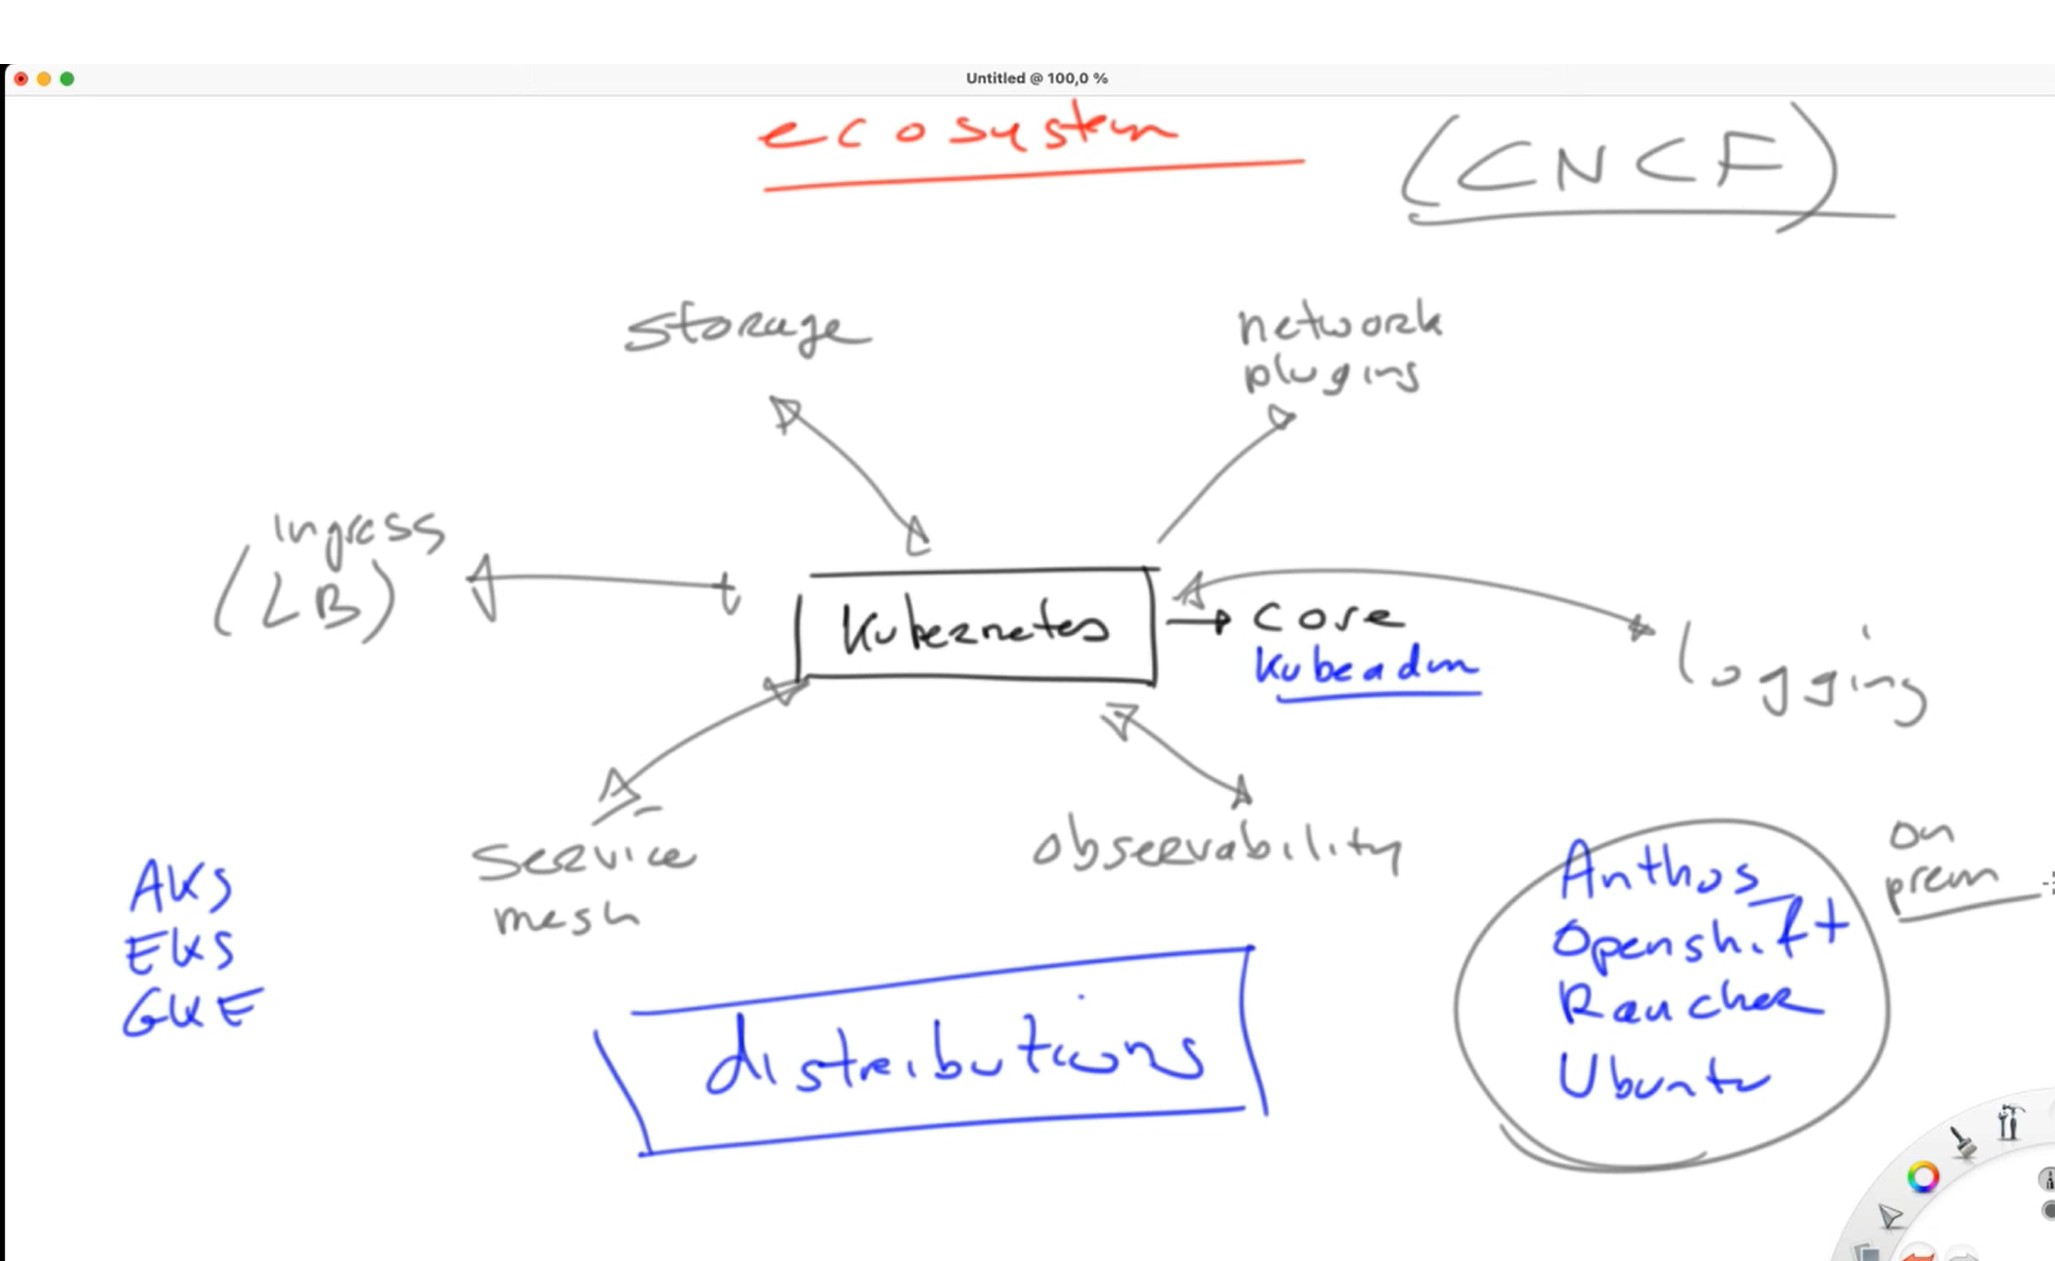 Untitled @ 100,0 %
ecosystem
(CNCF)
storage
network
plugins
ingress
(LB)
Kubernetes
core
kubeadm
logging
service
mesh
observability
on
prem
AKS
EKS
GKE
distributions
Anthos
Openshift
Raucher
Ubuntu